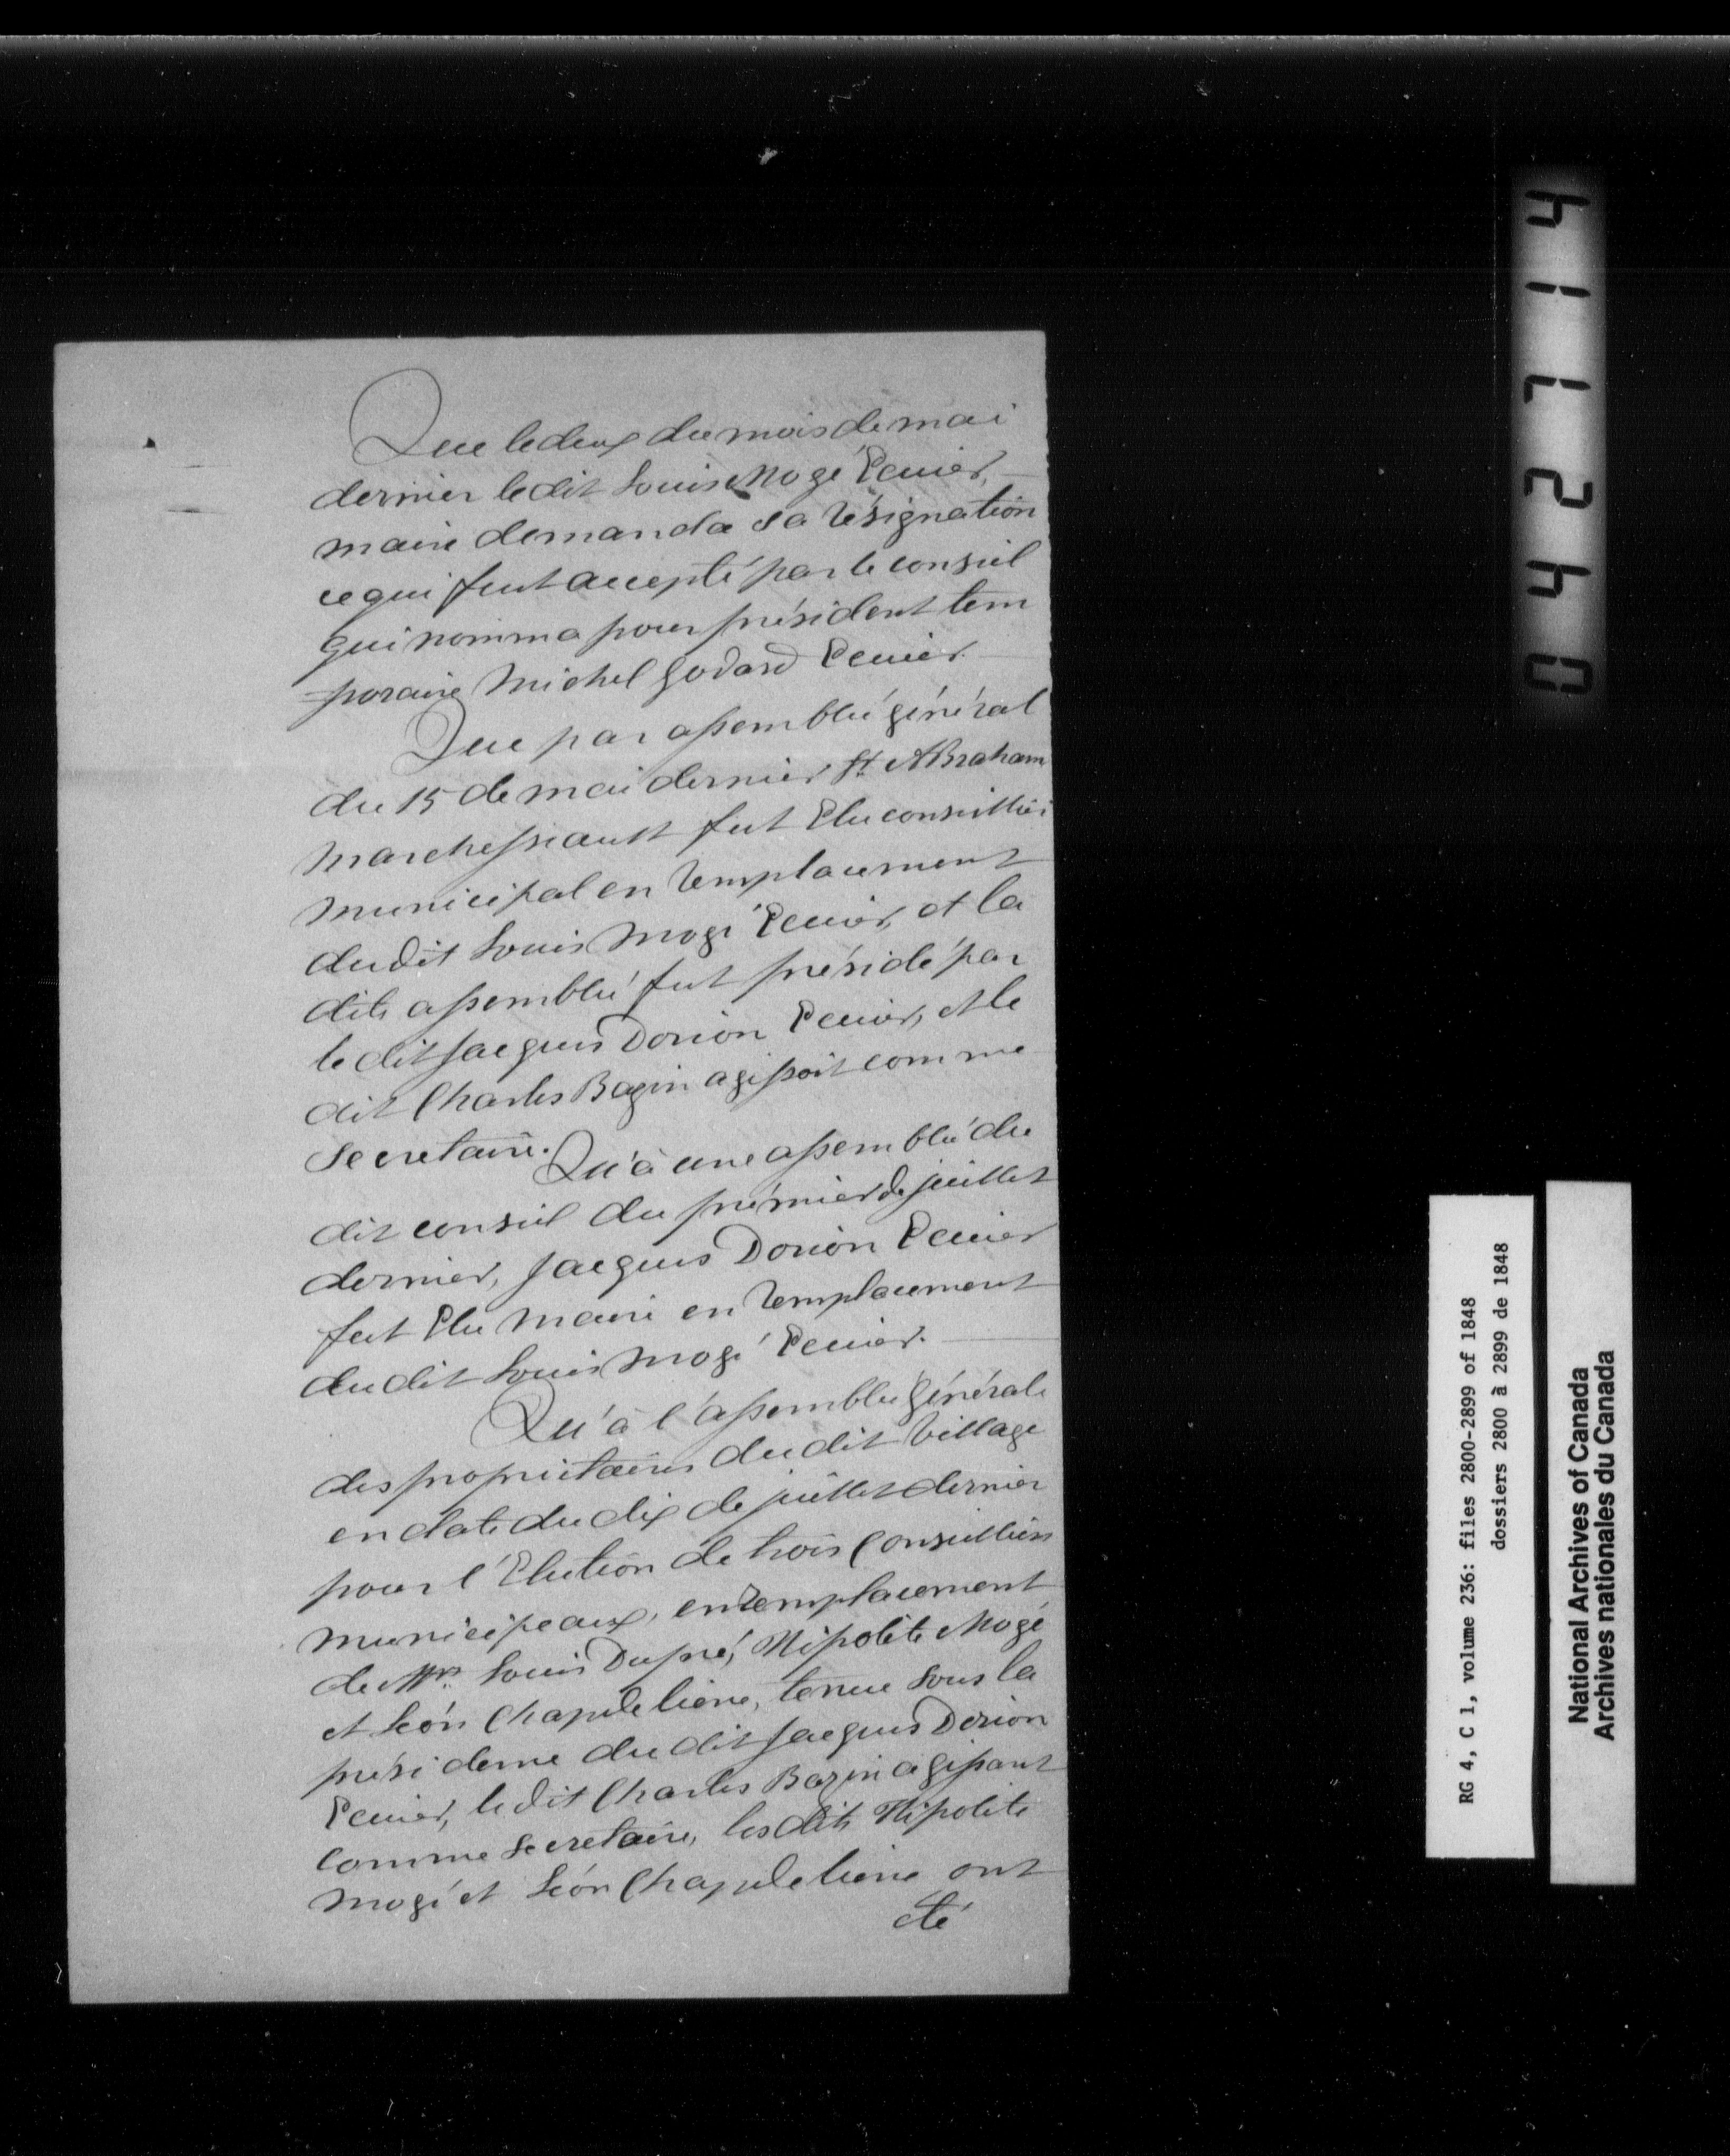 Que le deux du mois de mai
dernier le dit Louis Mogé Ecuier,
maire demanda sa résignation
ce qui fut accepté par le conseil
qui nomma pour président tem
poraire Michel Godard Ecuier.
Que par assemblée général
du 15 de mai dernier Sr. Abraham
Marchesseault fut Elu conseiller
municipal en remplacement
du dit Louis Mogé Ecuier, et la
dite assemblée fut présidé par
le dit Jacques Dorion Ecuier, et le
dit Charles Bazin agissoit comme
Secretaire.
Qu'à une assemblée du
dit conseil du prémier de juillet
dernier, Jacques Dorion Ecuier
fut Elu Maire en remplacement
du dit Louis Mogé Ecuier.
Qu'à l'assemblée générale
des propriétaires du dit Village
en date du dix de juillet dernier
pour l'Election de trois Conseillers
municipeaux, en remplacement
de Mrs. Louis Dupré, Hipolite Mogé
et Léon Chapdeleine, tenue sous la
présidence du dit Jacques Dorion
Ecuier, le dit Charles Bazin agissant
comme Secretaire, les dits Hipolite
Mogé et Léon Chapdeleine ont
été
042714
RG 4, C 1, volume 236: files 2800-2899 of 1848
dossiers 2800 à 2899 de 1848
National Archives of Canada
Archives nationales du Canada